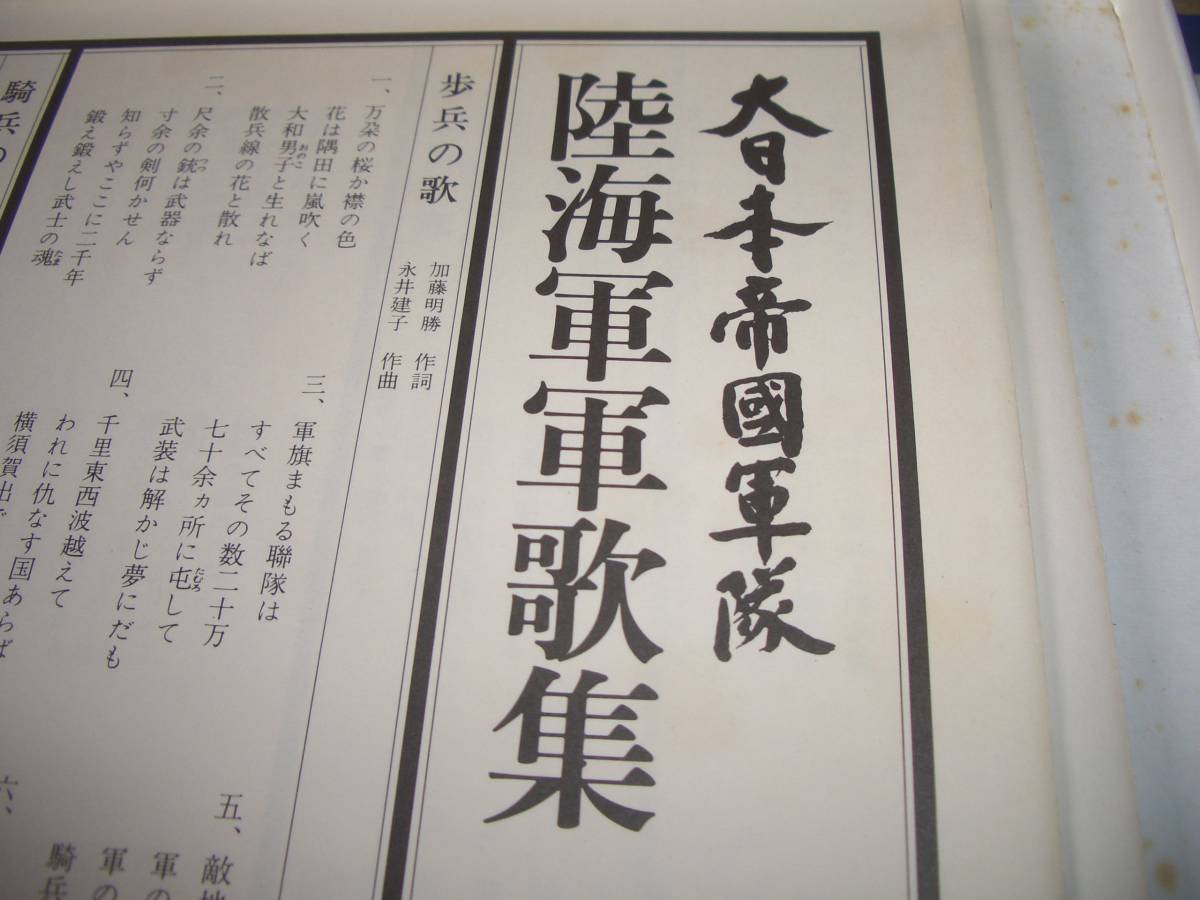 大日本帝國軍隊
陸海軍軍歌集
歩兵の歌
加藤明勝 作詞
永井建子 作曲
一、万朶の桜か襟の色
花は隅田に嵐吹く
大和男子と生れなば
散兵線の花と散れ
二、尺余の銃は武器ならず
寸余の剣何かせん
知らずやここに二千年
鍛え鍛えし武士の魂
三、軍旗まもる聯隊は
すべてその数二十万
七十余ヵ所に屯して
武装は解かじ夢にだも
四、千里東西波越えて
われに仇なす国あらば
横須賀出で
五、敵地
軍の
軍の
騎兵
六、
騎兵の